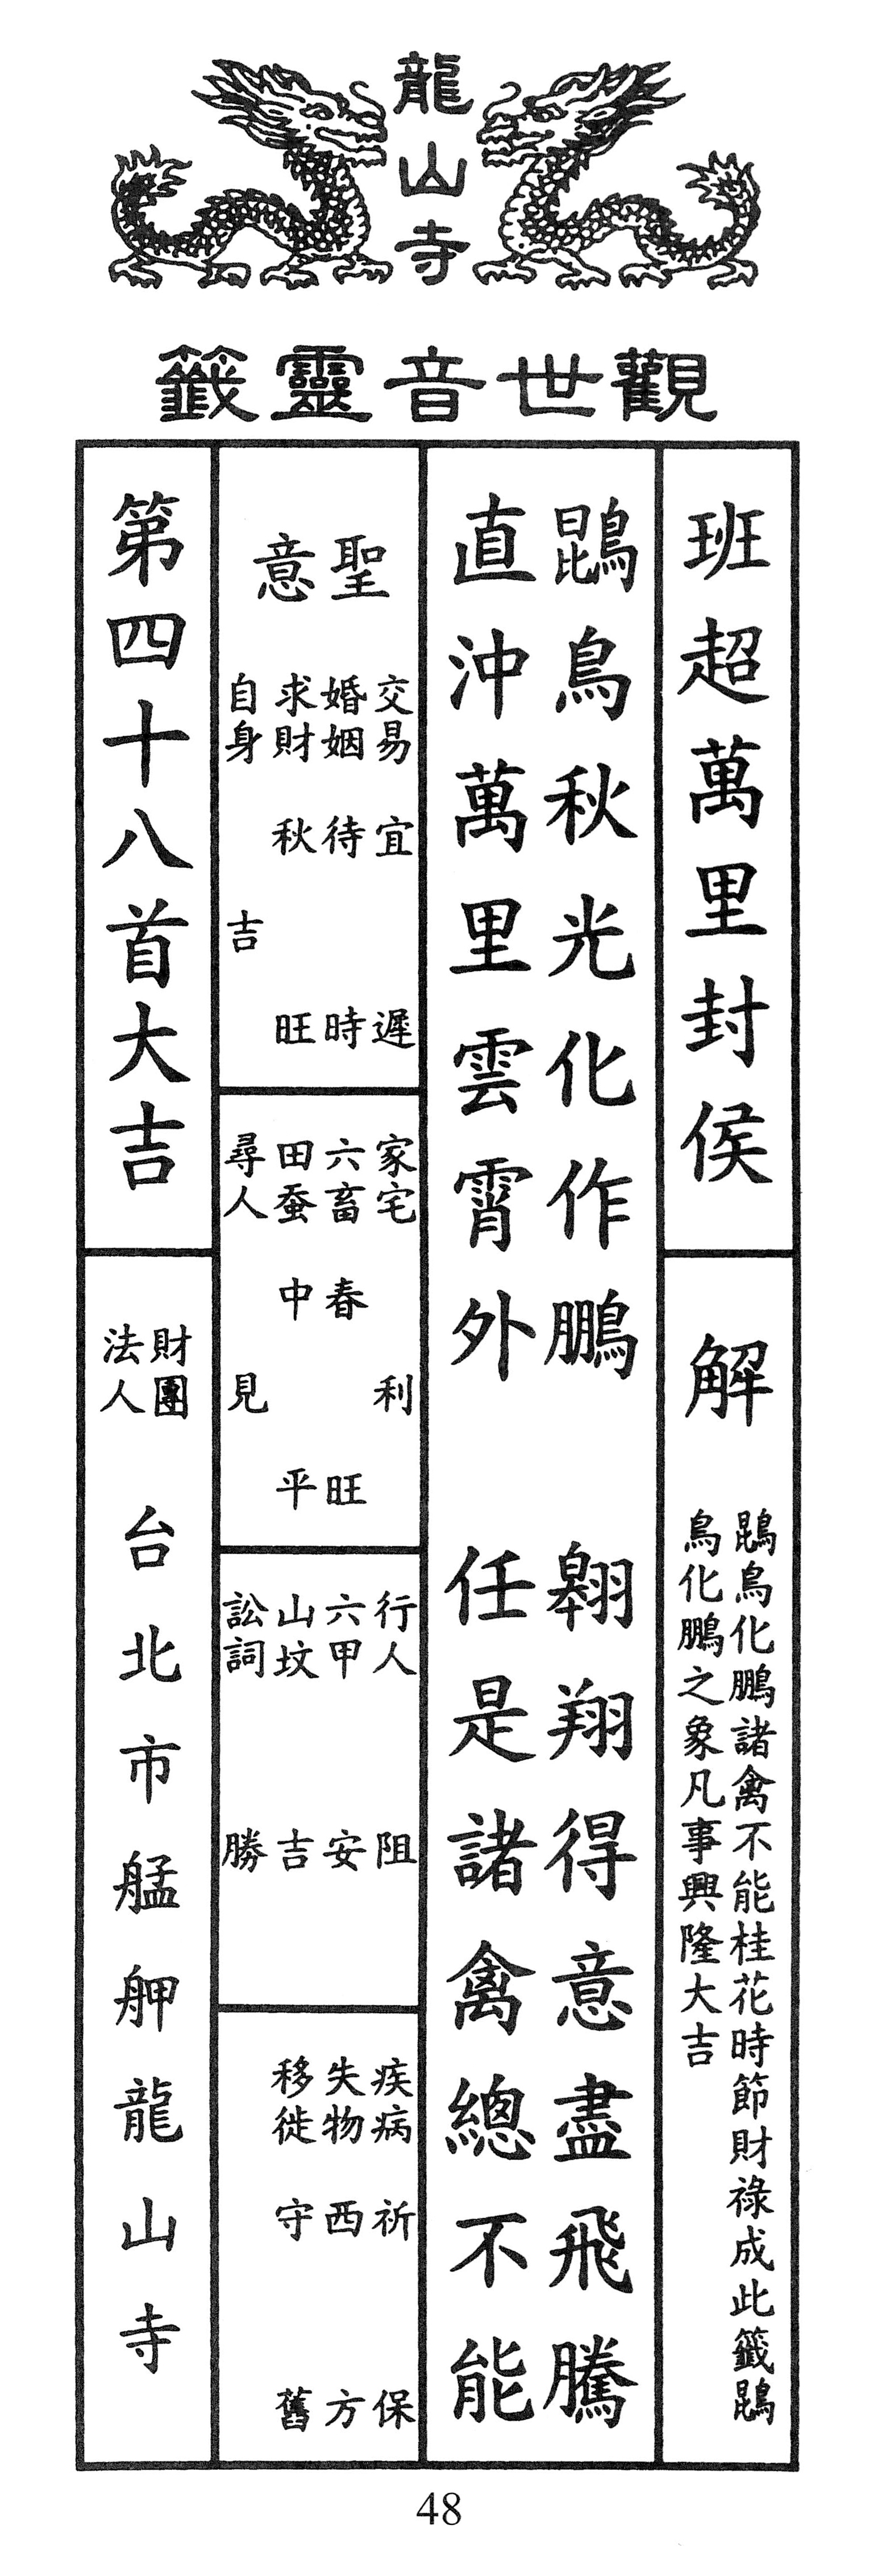 龍山寺
觀世音靈籤
班超萬里封侯
解
鵾鳥化鵬諸禽不能桂花時節財祿成此籤鵾
鳥化鵬之象凡事興隆大吉
鵾鳥秋光化作鵬 翱翔得意盡飛騰
直沖萬里雲霄外 任是諸禽總不能
聖意
交易 宜遲
婚姻 待時
求財 秋旺
自身 吉
家宅 利
六畜 春旺
田蚕 中平
尋人 見
行人 阻
六甲 安
山坟 吉
訟詞 勝
疾病 祈保
失物 西方
移徙 守舊
第四十八首大吉
財團
法人
台北市艋舺龍山寺
48